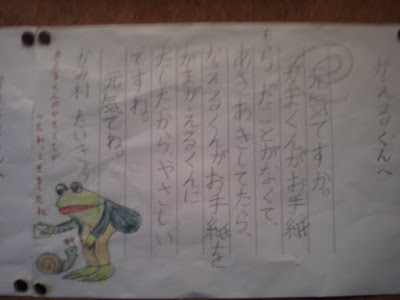 かえるくんへ
元気ですか。
がまくんがお手紙
もらったことがなくて、
あきあきしてたら、
かえるくんがお手紙を
がまがえるくんに
だしたから、やさしい
ですね。
元気でね。
かめ村 たいきより